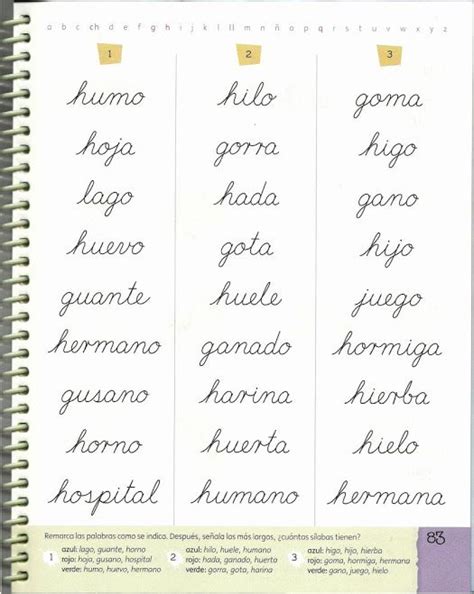 a b c ch d e f g h i j k l ll m n ñ o p q r s t u v w x y z
1 2 3
humo hilo goma
hoja gorra higo
lago hada gano
huevo gota hijo
guante huele juego
hermano ganado hormiga
gusano harina hierba
horno huerta hielo
hospital humano hermana
Remarca las palabras como se indica. Después, señala las más largas, ¿cuántas sílabas tienen?
83
1 azul: lago, guante, horno
rojo: hoja, gusano, hospital
verde: humo, huevo, hermano
2 azul: hilo, huele, humano
rojo: hada, ganado, huerta
verde: gorra, gota, harina
3 azul: higo, hijo, hierba
rojo: goma, hormiga, hermana
verde: gano, juego, hielo